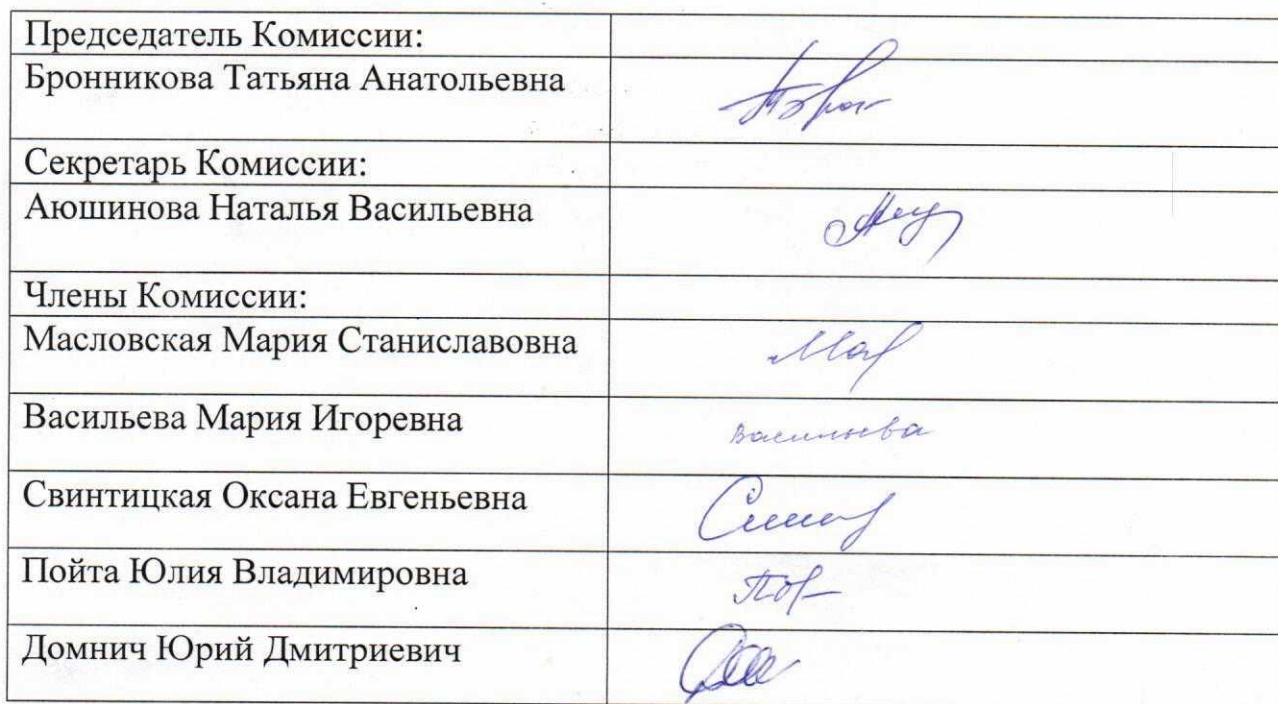 Председатель Комиссии:
Бронникова Татьяна Анатольевна
Секретарь Комиссии:
Аюшинова Наталья Васильевна
Члены Комиссии:
Масловская Мария Станиславовна
Васильева Мария Игоревна
Васильева
Свинтицкая Оксана Евгеньевна
Пойта Юлия Владимировна
Домнич Юрий Дмитриевич